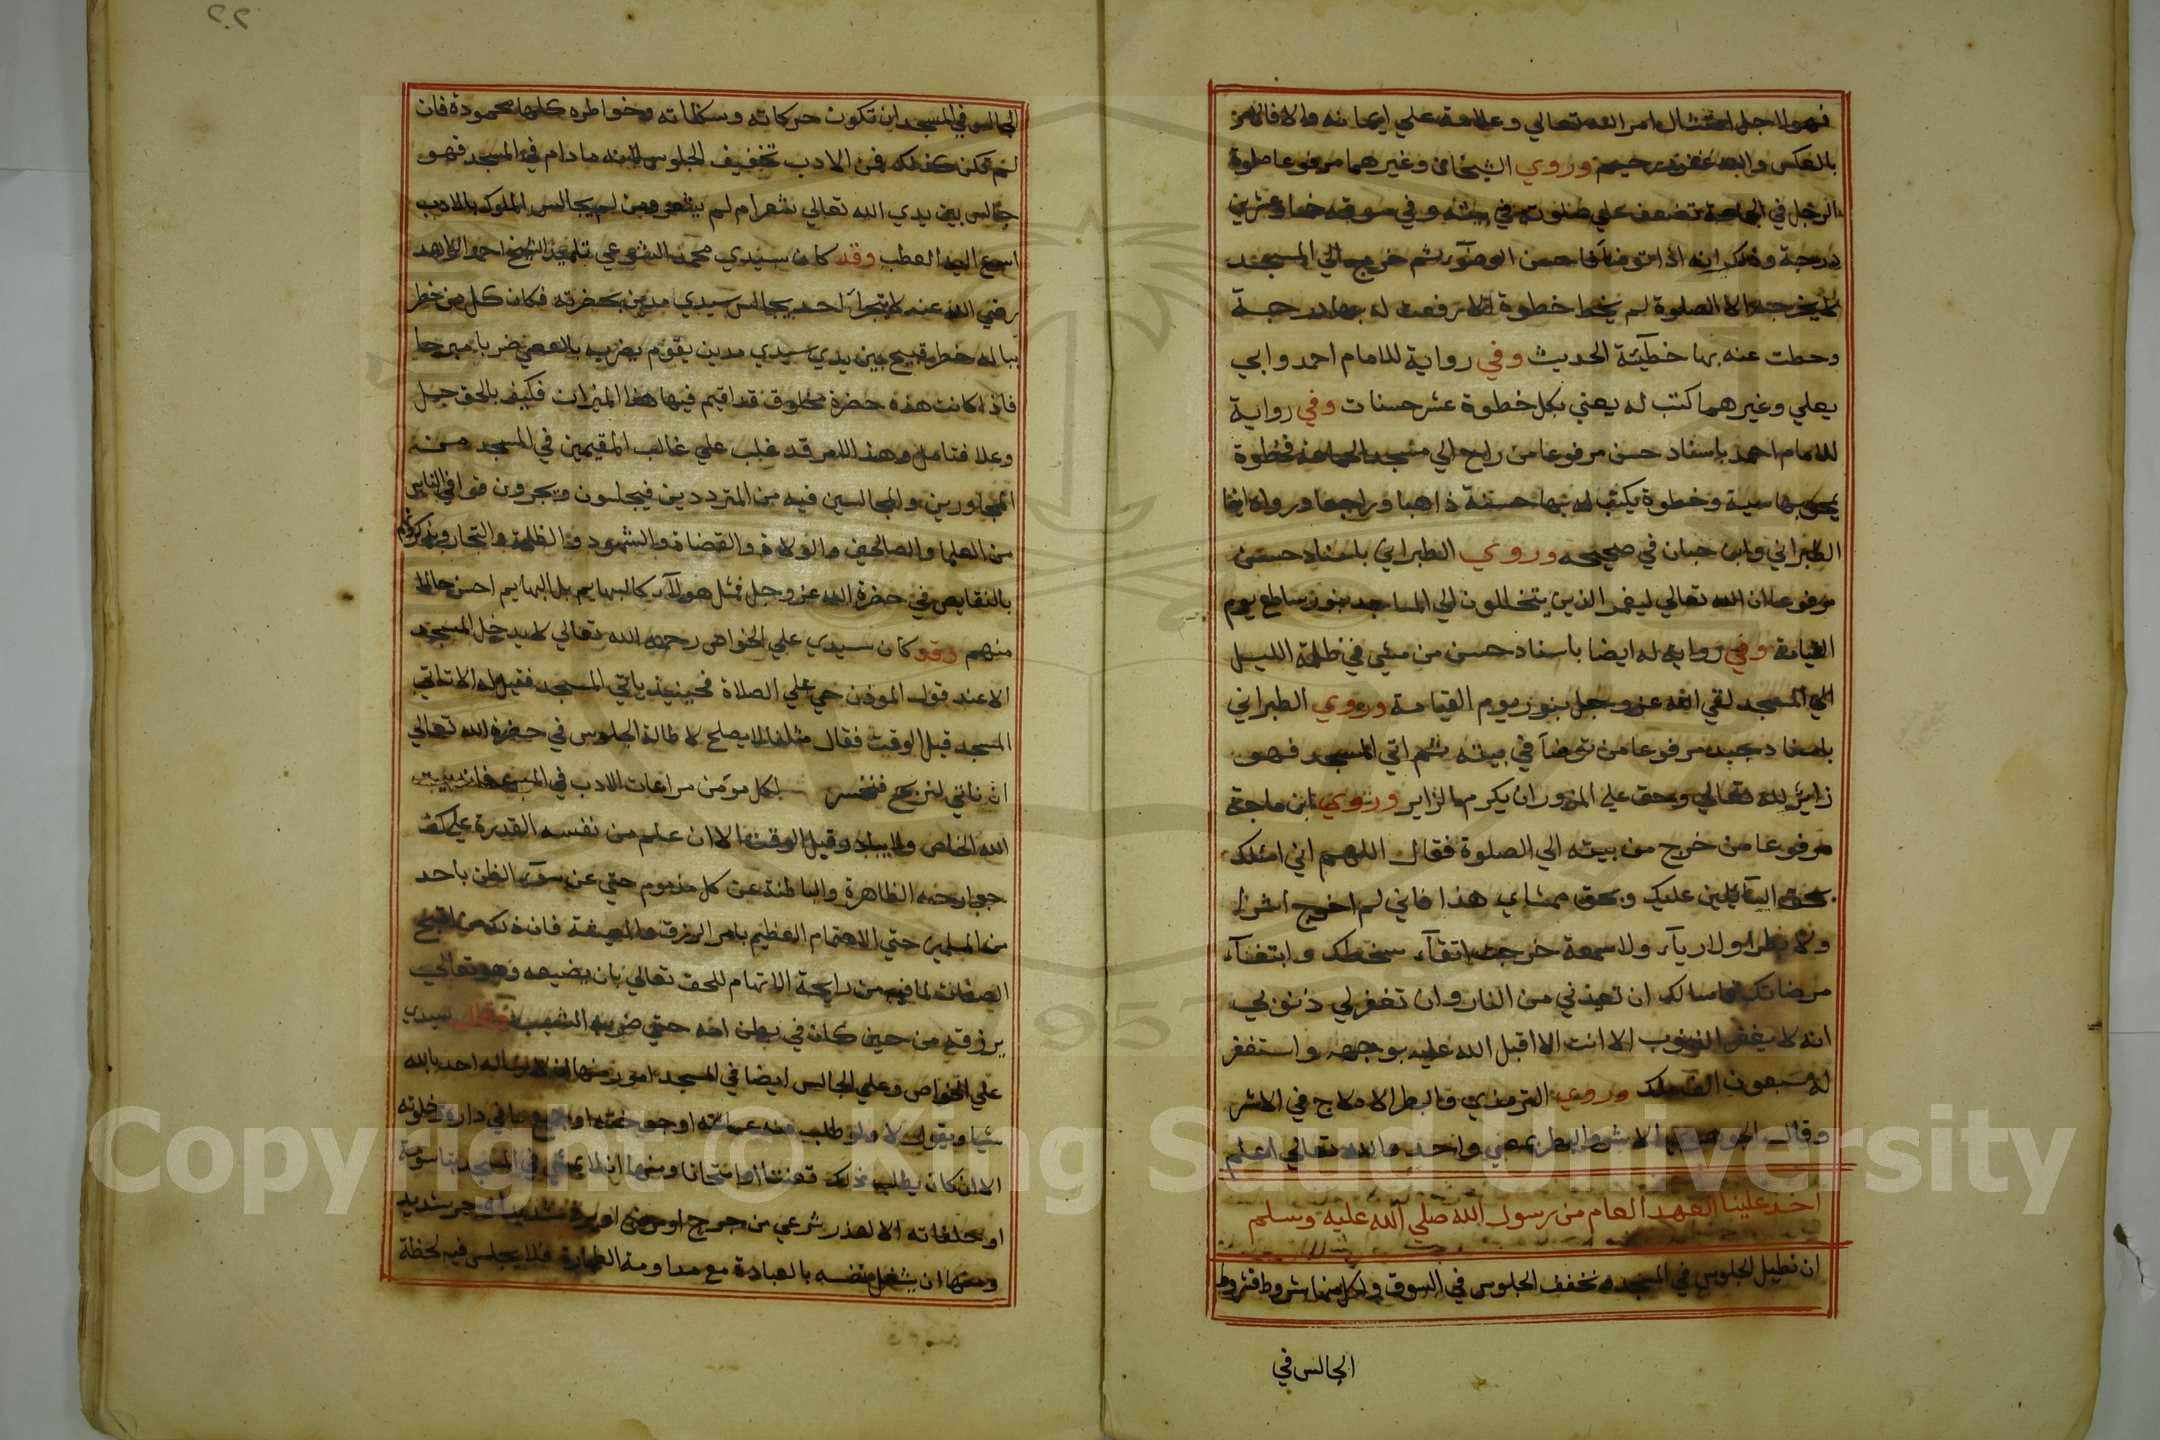 فهو لاجل امتثال امر الله تعالي وعلامة علي ايمانه والا فالامر
بالعكس والله غفور رحيم وروي الشيخان وغيرهما مرفوعا صلوة
الرجل في الجماعة تضعف علي صلوته في بيته وفي سوقه خمسا وعشرين
درجة وذلك انه اذا توضأ فاحسن الوضوء ثم خرج الي المسجد
لا يخرجه الا الصلوة لم يخط خطوة الا رفعت له بها درجة
وحطت عنه بها خطيئة الحديث وفي رواية للامام احمد وابي
يعلي وغيرهما كتب له يعني بكل خطوة عشر حسنات وفي رواية
للامام احمد باسناد حسن مرفوعا من راح الي مسجد الجماعة فخطوة
يمحي بها سية وخطوة يكتب له بها حسنة ذاهبا وراجعا ورواه ايضا
الطبراني وابن حبان في صحيحه وروي الطبراني باسناد حسن
مرفوعا ان الله تعالي ليغمر الذين يتخللون الي المساجد بنور ساطع يوم
القيامة وفي رواية له ايضا باسناد حسن من مشي في ظلمة الليل
الي المسجد لقي الله عز وجل بنور يوم القيامة وروي الطبراني
باسناد جيد مرفوعا من توضأ في بيته ثم اتي المسجد فهو
زاير لله تعالي وحق علي المزور ان يكرم الزاير وروي ابن ماجة
مرفوعا من خرج من بيته الي الصلوة فقال اللهم اني اسئلك
بحق السآيلين عليك وبحق ممشاي هذا فاني لم اخرج اشرا
ولا بطرا ولا رياء ولا سمعة خرجت اتقآء سخطك وابتغآء
مرضاتك اسالك ان تعيذني من النار وان تغفر لي ذنوبي
انه لا يغفر الذنوب الا انت الا اقبل الله عليه بوجهه واستغفر
له سبعون الف ملك وروي الترمذي والبطر الا في الاشر
وقال الجوهري الاشر والبطر بمعني واحد والله تعالي اعلم
اخذ علينا العهد العام من رسول الله صلي الله عليه وسلم
ان نطيل الجلوس في المسجد ونخفف الجلوس في السوق ولكل منهما شروط فشروط
الجالس في
٢٢
الجالس في المسجد ان تكون حركاته وسكناته وخواطره كلها محمودة فان
لم تمكن كذلك فمن الادب تخفيف الجلوس لانه ما دام في المسجد فهو
جالس بين يدي الله تعالي شعر ام لم يشعر ومن لم يجالس الملوك بالادب
اسرع اليه العطب وقد كان سيدي محمد الشويمي تلميذ الشيخ احمد الزاهد
رضي الله عنه لا يتجرأ احد يجالس سيدي مدين بحضرته فكان كل من خطر
بباله خطر قبيح بين يدي سيدي مدين يقوم يضربه بالعصي ضربا مبرحا
فاذا كانت هذه حضرة مخلوق قد اقيم فيها هذا الميزان فكيف بالحق جل
وعلا فتامل وهذا الامر قد غلب علي غالب المقيمين في المسجد من
المجاورين والجالسين فيه من المترددين فيجلسون ويجرون قوافي الناس
من العلما والصالحين والولاة والقضاة والشهود والظلمة والتجار ويذكرونهم
بالنقايص في حضرة الله عز وجل فمثل هولآء كالبهايم بل البهايم احسن حالا
منهم وقد كان سيدي علي الخواص رحمه الله تعالي لا يدخل المسجد
الا عند قول الموذن حي علي الصلاة فحينيذ ياتي المسجد فقيل له الا تاتي
المسجد قبل الوقت فقال مثلنا لا يصلح لاطالة الجلوس في حضرة الله تعالي
ان ناتي لنربح فنخسر لكل مومن مراعات الادب في المسجد فانه بيت
الله الخاص وقيل الوقت الا ان علم من نفسه القدرة علي كف
جوارحه الظاهرة والباطنة عن كل مذموم حتي عن سوء الظن باحد
من المسلمين حتي الاهتمام العظيم بامر الرزق والمعيشة فان ذلك من اقبح
الصفات لما فيه من رايحة الاتهام للحق تعالي بان يضيعه وهو تعالي
يرزقه من حين كان في بطن امه حتي ضربه الشيب سيدي
علي الخواص وعلي الجالس ايضا في المسجد امور منها انه لا يساله احد بالله
شيا ويقول لا ولو طلب منه عمامته او جوخته او جميع ما في داره وخلوته
الا ان كان يطلب ذلك تعنتا او امتحانا ومنها انه لا يمشي في المسجد بتاسومة
او حلفاته الا لعذر شرعي من جرح او مرض او برد شديد او حر شديد
ومنها ان يشغل نفسه بالعبادة مع مداومة الطهارة فلا يجلس فيه لحظة
Copyright © King Saud University
1957